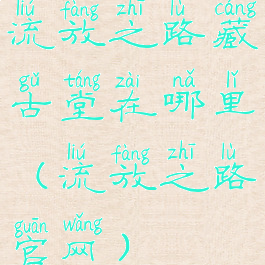 liú fàng zhī lù cáng
流放之路藏
gǔ táng zài nǎ lǐ
古堂在哪里
liú fàng zhī lù
（流放之路
guān wǎng
官网）